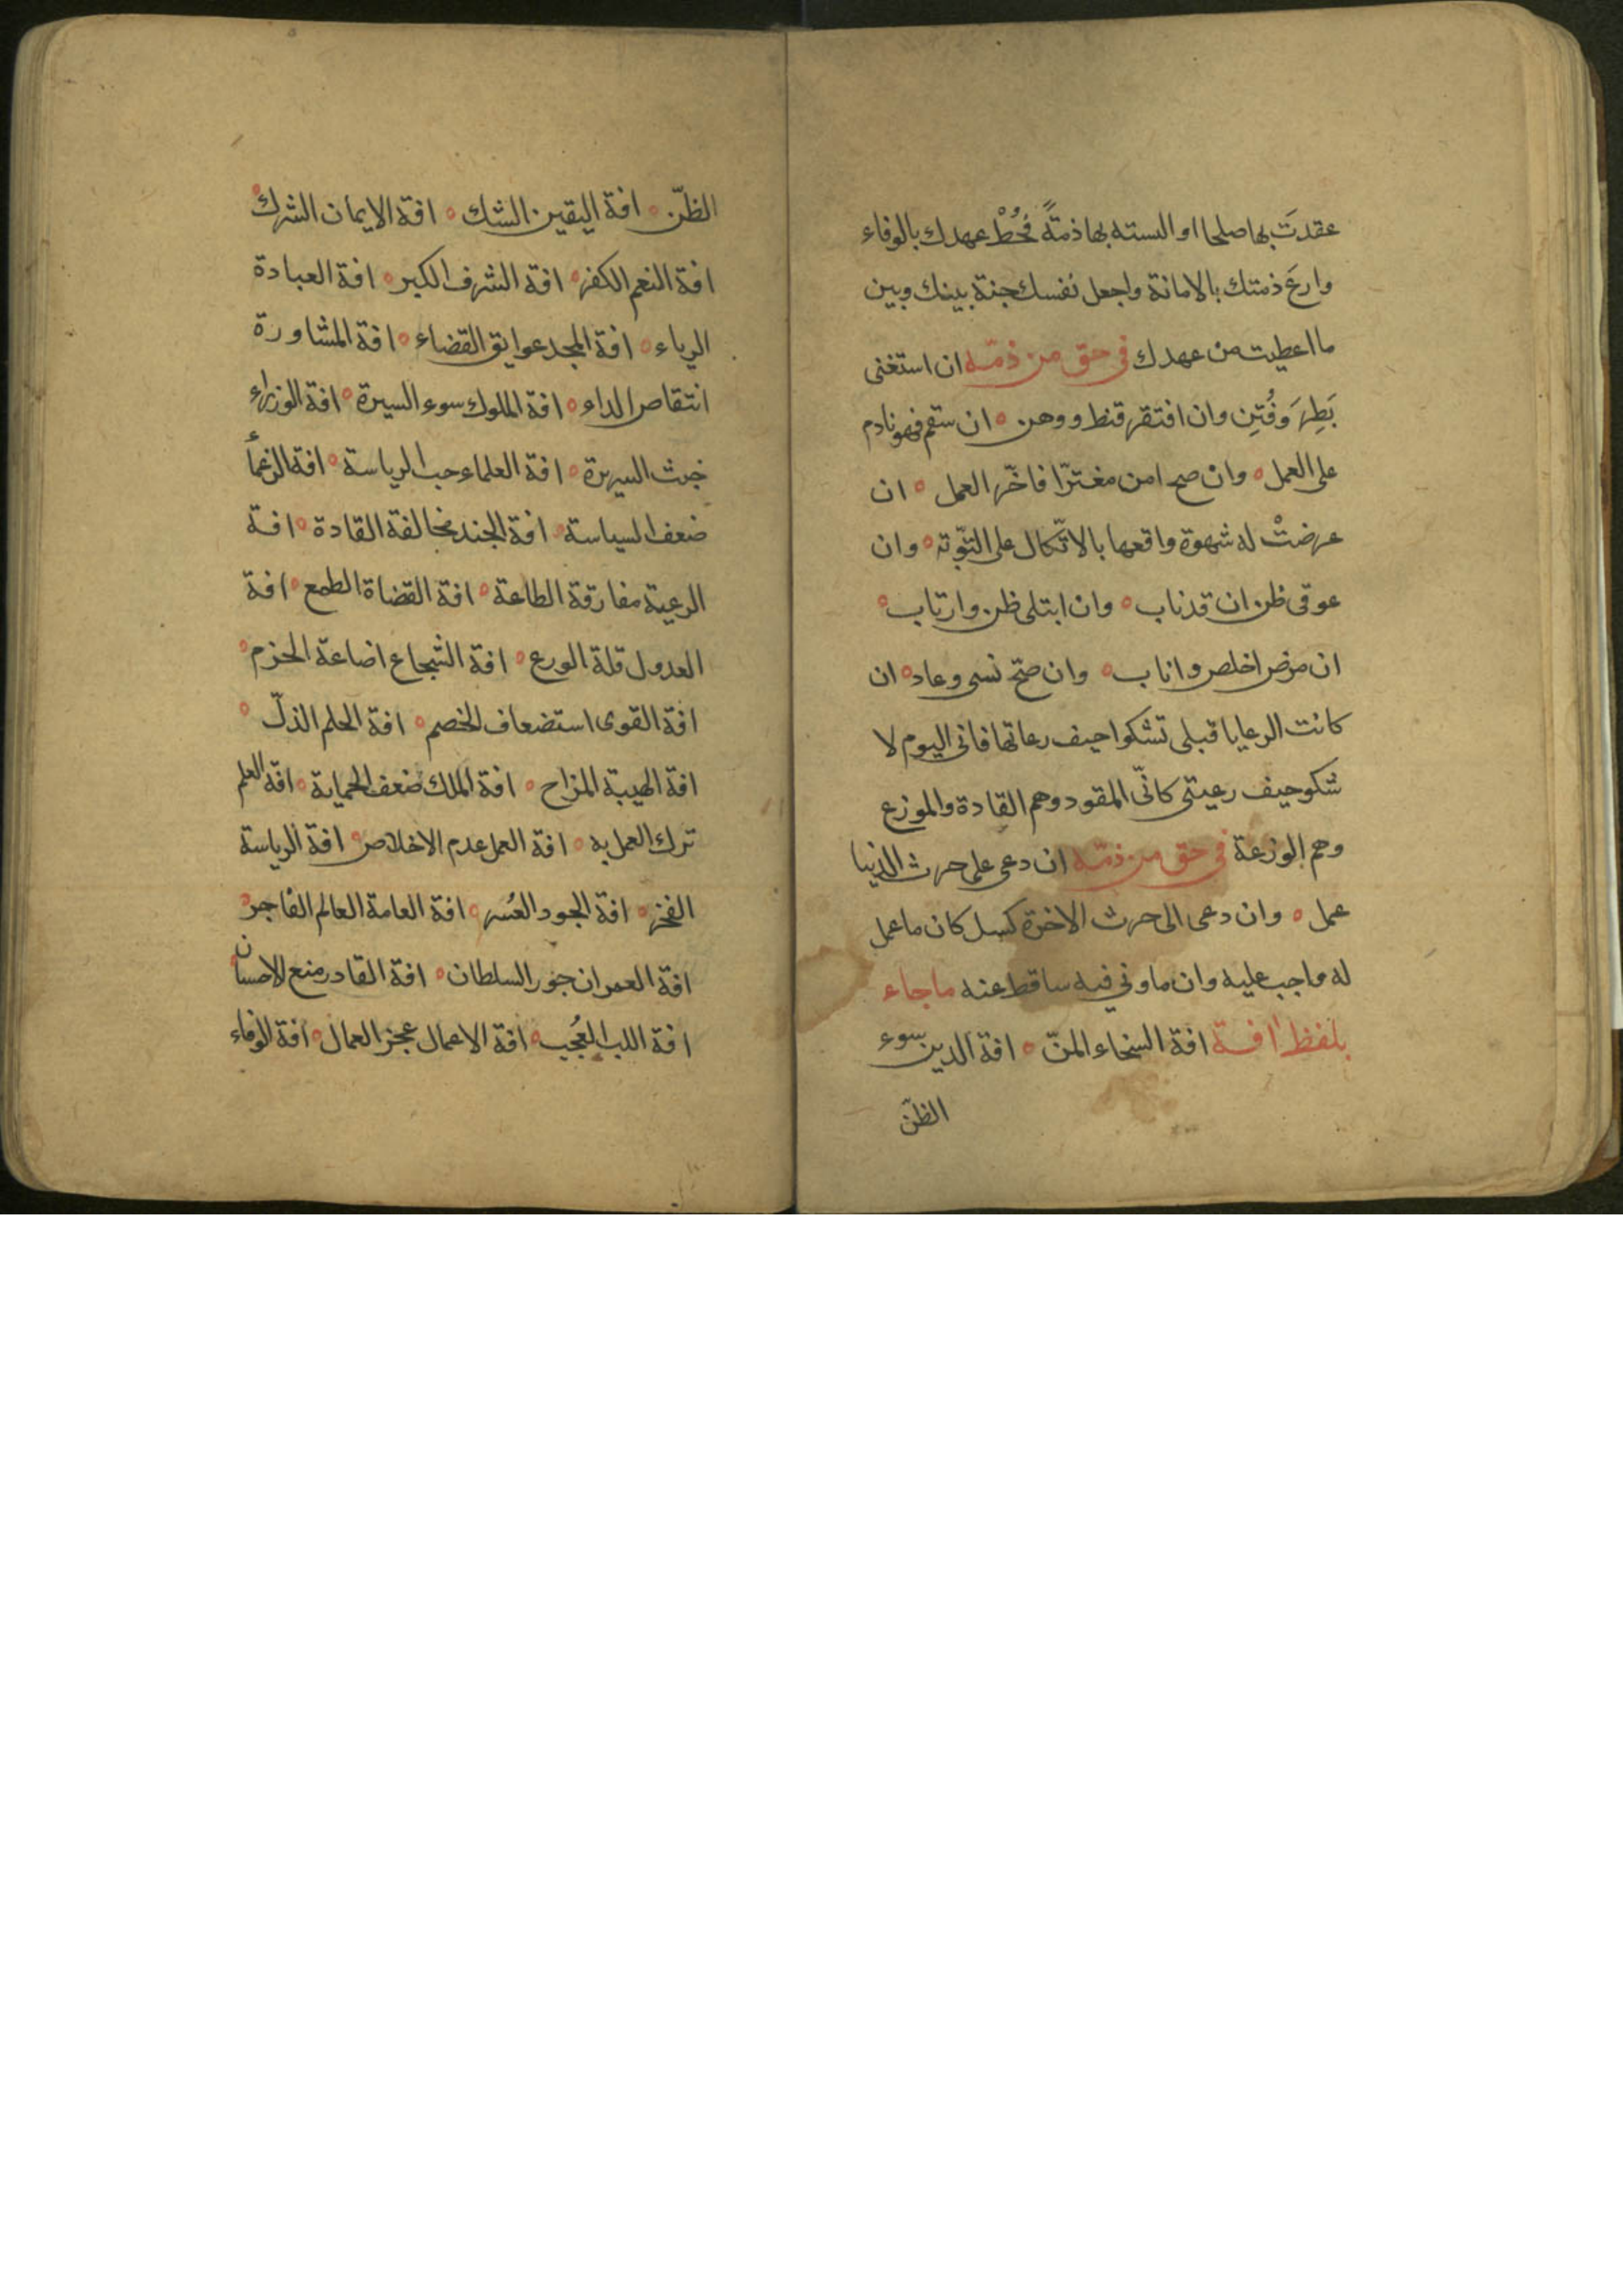 عقدتَ بها صلحا او البسته بها ذمتةً فحُطْ عهدك بالوفاء
وارعَ ذمتك بالامانة واجعل نفسك جنة بينك وبين
ما اعطيت من عهدك في حق من ذمّه ان استغنى
بَطِرَ وَفُتِن وان افتقر قنط ووهن ه ان سقم فهو نادم
على العمل ه وان صح امن مغترّا فاخّر العمل ه ان
عرضتْ له شهوة واقعها بالاتّكال على التّوبة ه وان
عوفى ظن ان قد تاب ه وان ابتلى ظن وارتاب ه
ان مرض اخلص واناب ه وان صحّ نسى وعاد ه ان
كانت الرعايا قبلى تشكوا حيف رعاتها فانى اليوم لا
شكو حيف رعيتى كانّى المقود وهم القادة والموزع
وهم الوزعة في حق من ذمّه ان دعى على حرث الدنيا
عمل ه وان دعى الى حرث الاخرة كسل كان ما عمل
له واجب عليه وان ما ونى فيه ساقط عنه ماجاء
بلفظ افة افة السخاء المنّ ه افة الدين سوء
الظنّ
الظنّ ه افة اليقين الشك ه افة الايمان الشرك ه
افة النعم الكفر ه افة الشرف الكبر ه افة العبادة
الرياء ه افة المجد عوايق القضاء ه افة المشاورة
انتقاص الداء ه افة الملوك سوء السيرة ه افة الوزراء
خبث السيرة ه افة العلماء حب الرياسة ه افة الزعمأ
ضعف السياسة ه افة الجند مخالفة القادة ه افة
الرعية مفارقة الطاعة ه افة القضاة الطمع ه افة
العدول قلة الورع ه افة الشجاع اضاعة الحزم ه
افة القوى استضعاف الخصم ه افة الحلم الذلّ ه
افة الهيبة المزاح ه افة الملك ضعف الحماية ه افة العلم
ترك العمل به ه افة العمل عدم الاخلاص ه افة الرياسة
الفخر ه افة الجود العُسر ه افة العامة العالم الفاجر ه
افة العمران جور السلطان ه افة القادر منع الاحسان ه
افة اللب العُجب ه افة الاعمال عجز العمال ه افة الوفاء